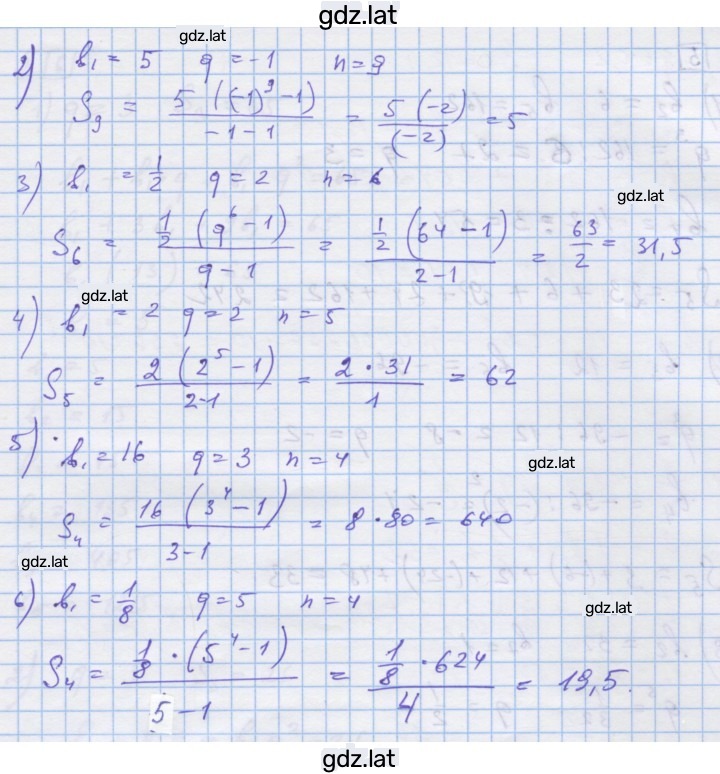 gdz.lat
gdz.lat
2) b₁ = 5 q = -1 n = 9
S₉ = 5 ((-1)⁹ - 1) / -1 - 1 = 5 (-2) / (-2) = 5
3) b₁ = 1/2 q = 2 n = 6
gdz.lat
S₆ = 1/2 (q⁶ - 1) / q - 1 = 1/2 (64 - 1) / 2 - 1 = 63/2 = 31,5
gdz.lat
4) b₁ = 2 q = 2 n = 5
S₅ = 2 (2⁵ - 1) / 2-1 = 2 · 31 / 1 = 62
5) b₁ = 16 q = 3 n = 4
gdz.lat
S₄ = 16 (3⁴ - 1) / 3 - 1 = 8 · 80 = 640
gdz.lat
6) b₁ = 1/8 q = 5 n = 4
gdz.lat
S₄ = 1/8 · (5⁴ - 1) / 5 - 1 = 1/8 · 624 / 4 = 19,5.
gdz.lat
gdz.lat